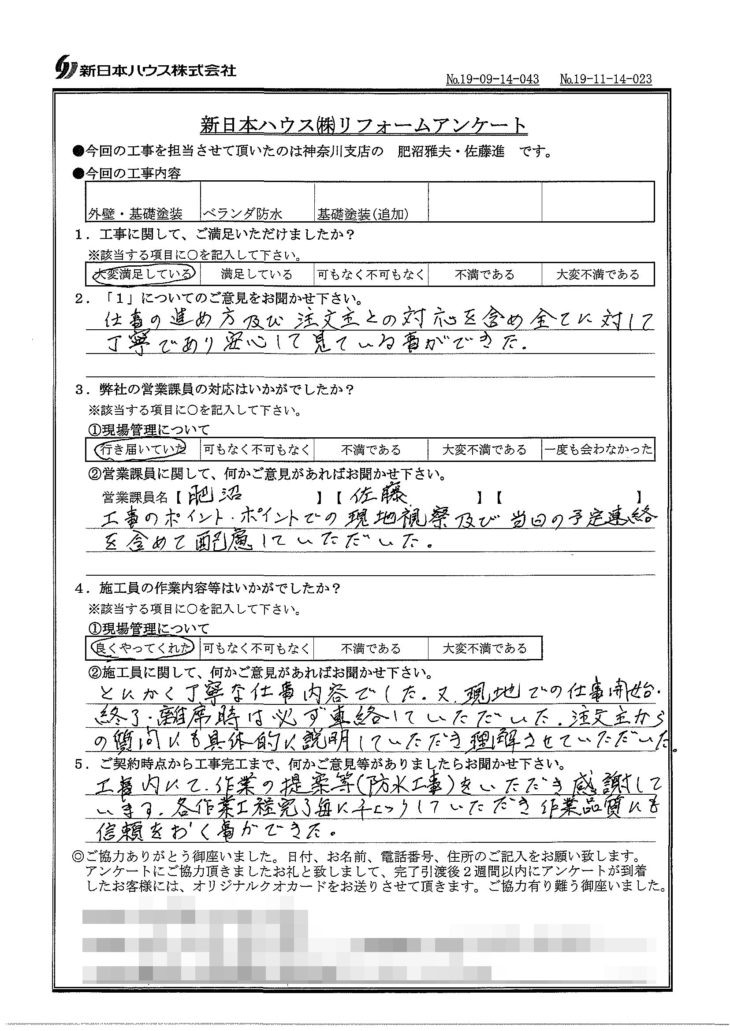 新日本ハウス株式会社
№19-09-14-043 №19-11-14-023
新日本ハウス㈱リフォームアンケート
●今回の工事を担当させて頂いたのは神奈川支店の 肥沼雅夫・佐藤進 です。
●今回の工事内容
外壁・基礎塗装 ベランダ防水 基礎塗装(追加)
1．工事に関して、ご満足いただけましたか？
※該当する項目に○を記入して下さい。
大変満足している 満足している 可もなく不可もなく 不満である 大変不満である
2．「1」についてのご意見をお聞かせ下さい。
仕事の進め方及び注文主との対応を含め全てに対して
丁寧であり安心して見ている事ができた．
3．弊社の営業課員の対応はいかがでしたか？
※該当する項目に○を記入して下さい。
①現場管理について
行き届いていた 可もなく不可もなく 不満である 大変不満である 一度も会わなかった
②営業課員に関して、何かご意見があればお聞かせ下さい。
営業課員名【 肥沼 】【 佐藤 】【 】
工事のポイント・ポイントでの現地視察及び当日の予定連絡
を含めて配慮していただいた。
4．施工員の作業内容等はいかがでしたか？
※該当する項目に○を記入して下さい。
①現場管理について
良くやってくれた 可もなく不可もなく 不満である 大変不満である
②施工員に関して、何かご意見があればお聞かせ下さい。
とにかく丁寧な仕事内容でした．又、現地での仕事開始・
終了・離席時は必ず連絡していただいた．注文主から
の質問にも具体的に説明していただき理解させていただいた。
5．ご契約時点から工事完工まで、何かご意見等がありましたらお聞かせ下さい。
工事内にて、作業の提案等(防水工事)をいただき感謝して
います．各作業工程完了毎にチェックしていただき作業品質にも
信頼をおく事ができた。
◎ご協力ありがとう御座いました。日付、お名前、電話番号、住所のご記入をお願い致します。
アンケートにご協力頂きましたお礼と致しまして、完了引渡後2週間以内にアンケートが到着
したお客様には、オリジナルクオカードをお送りさせて頂きます。ご協力有り難う御座いました。